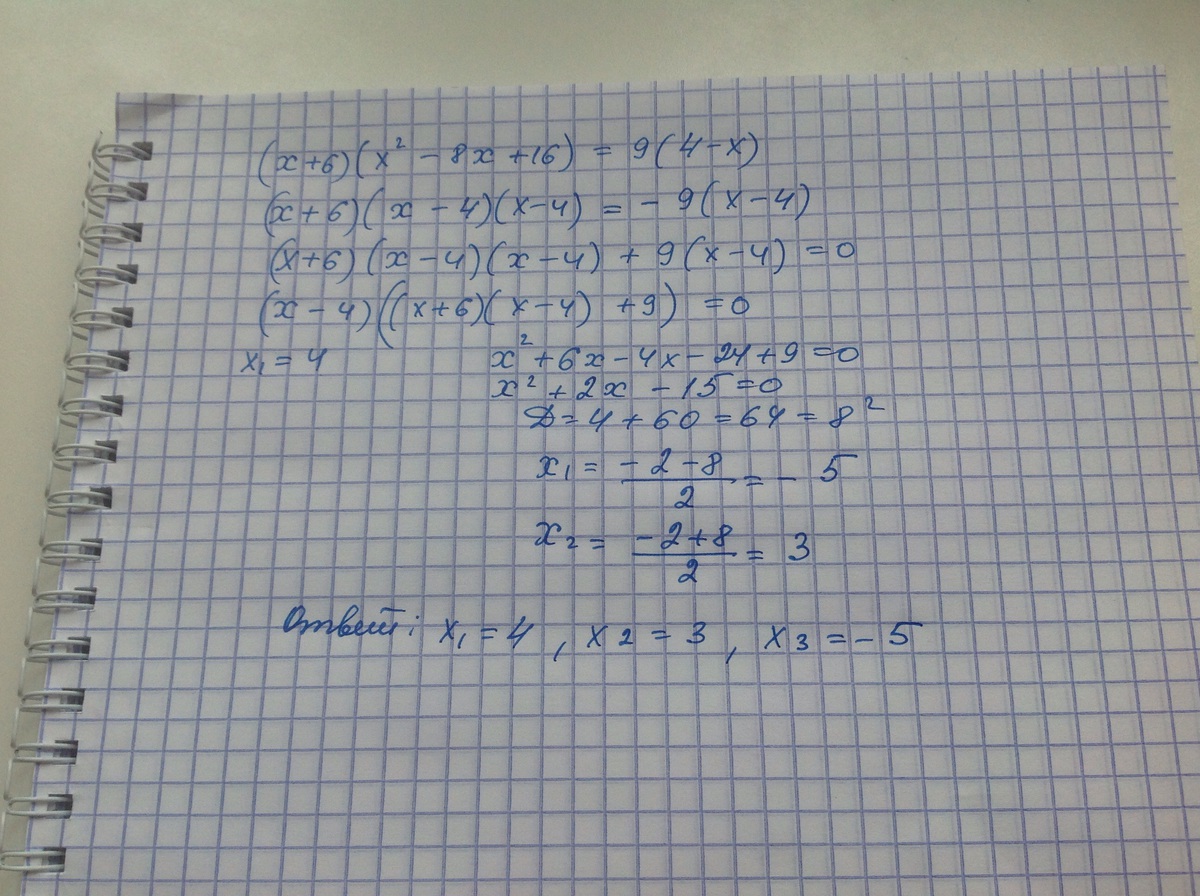 (x+6)(x² - 8x + 16) = 9(4-x)
(x+6)(x - 4)(x-4) = - 9(x-4)
(x+6)(x-4)(x-4) + 9(x-4) = 0
(x-4)((x+6)(x-4) + 9) = 0
x₁ = 4 x² + 6x - 4x - 24 + 9 = 0
x² + 2x - 15 = 0
D = 4 + 60 = 64 = 8²
x₁ = (-2-8)/2 = - 5
x₂ = (-2+8)/2 = 3
Ответ: x₁ = 4 , x2 = 3 , x3 = -5